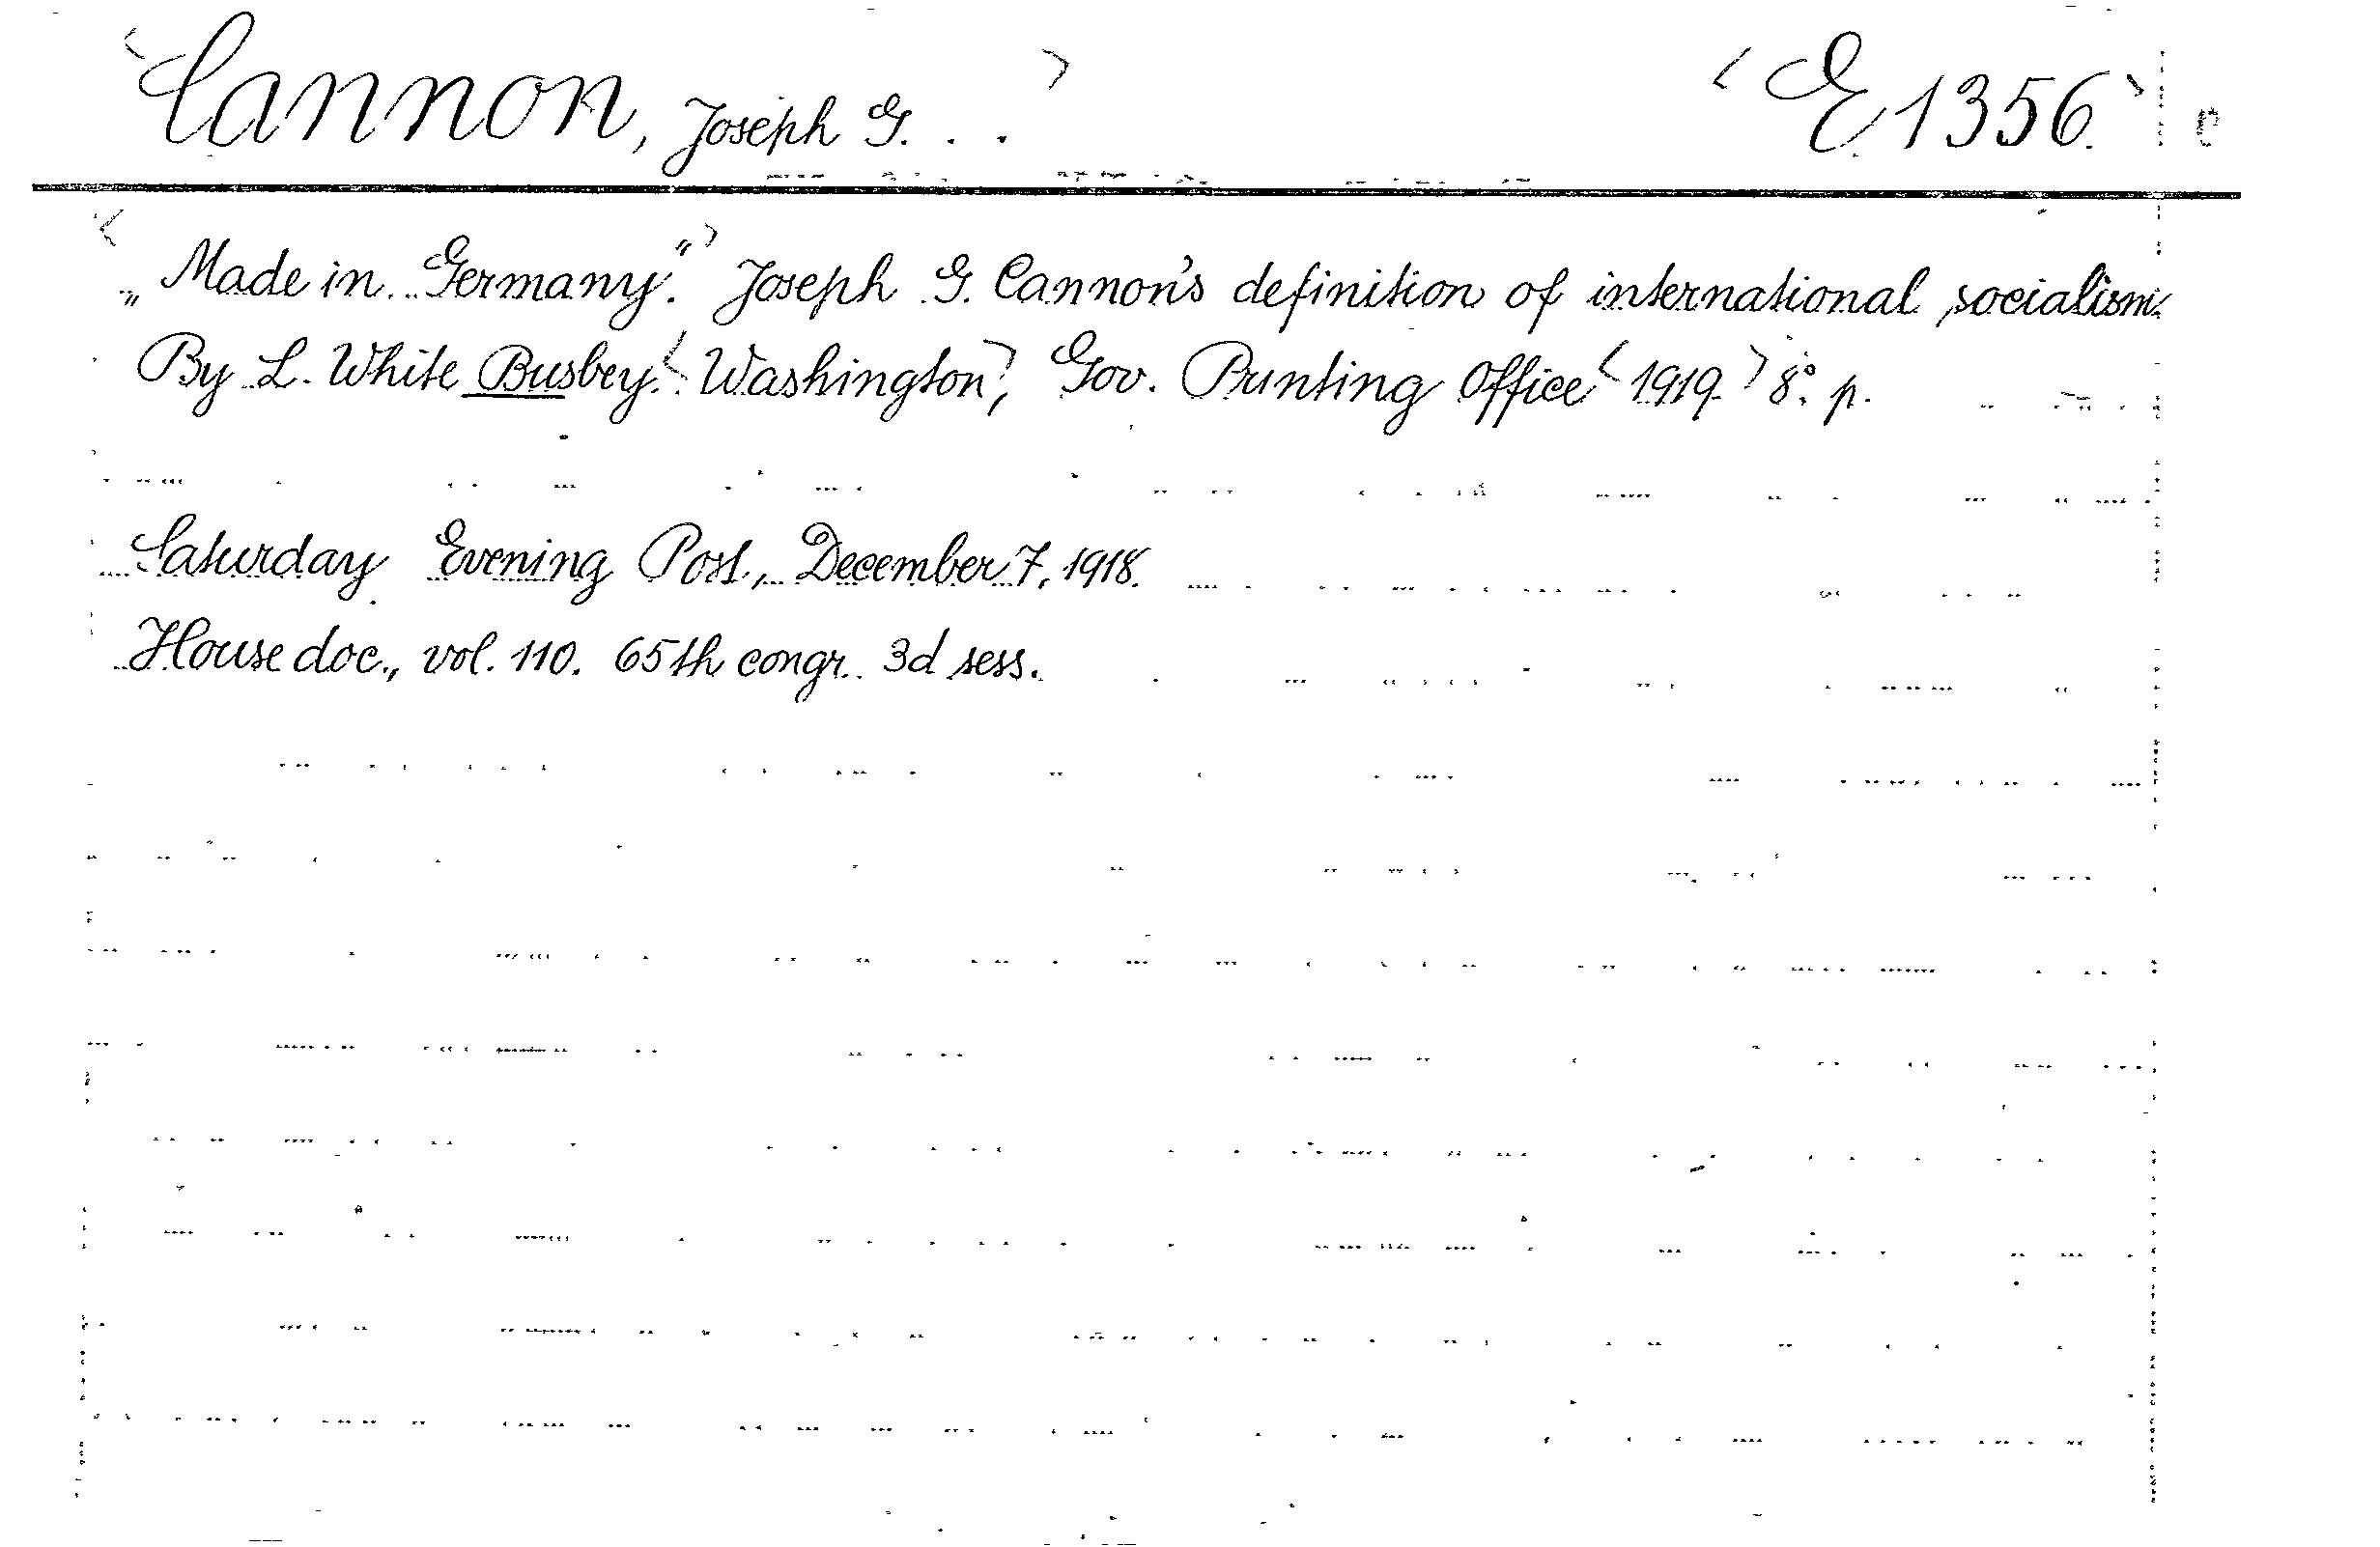 <Cannon, Joseph G...> <E 1356.>
<„Made in Germany.“> Joseph G. Cannon's definition of international socialism.
By L. White Busbey. <Washington>, Gov. Printing Office <1919> 8°. p.
Saturday Evening Post, December 7, 1918.
House doc., vol. 110. 65th congr. 3d sess.